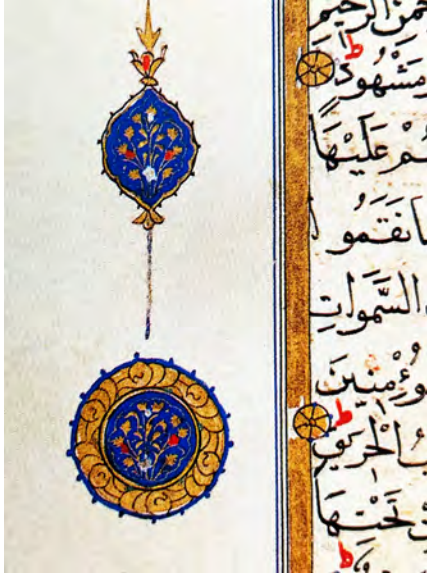 حْمٰنِ الرَّحِيمِ
وَمَشْهُودٍ ط
هُمْ عَلَيْهَا
مَا نَقَمُوا
السَّمٰوَاتِ
ؤْمِنِينَ
ط
بُ الْحَرِيقِ
تَحْتِهَا
ط